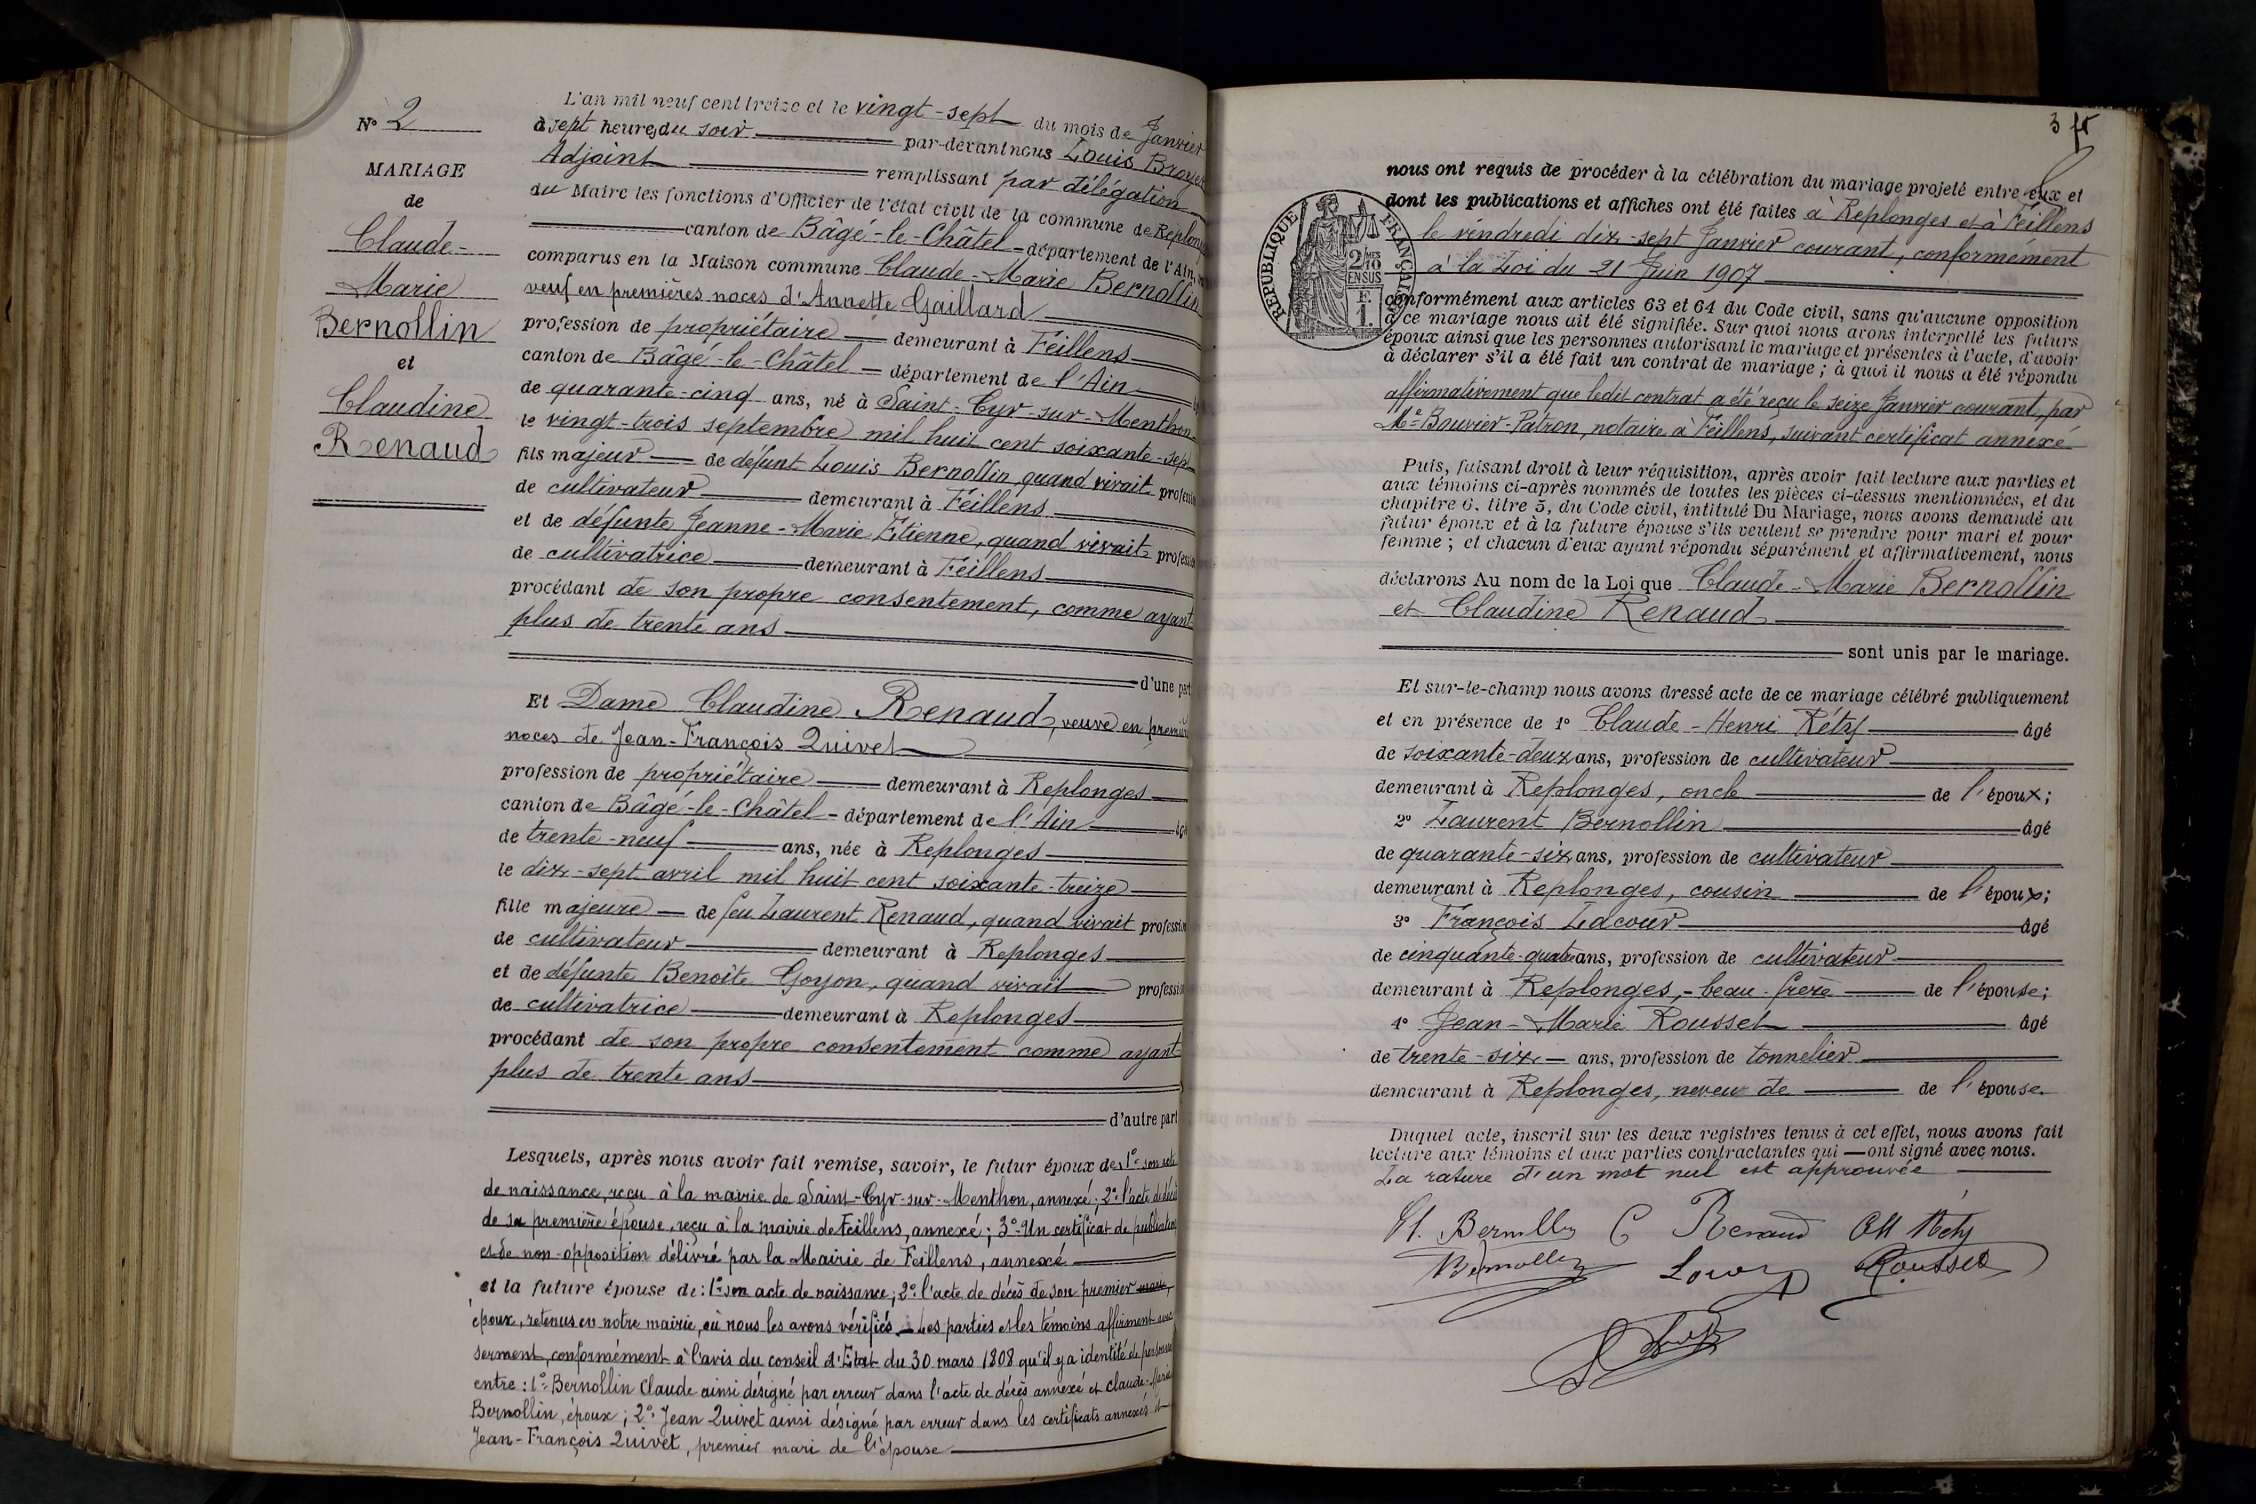 N° 2
MARIAGE
de
Claude-
Marie
Bernollin
et
Claudine
Renaud
L'an mil neuf cent treize et le vingt-sept du mois de Janvier
à sept heures du soir par-devant nous Louis Broyer
Adjoint remplissant par délégation
du Maire les fonctions d'Officier de l'état civil de la commune de Replonges
canton de Bâgé-le-Châtel - département de l'Ain,
comparus en la Maison commune Claude-Marie Bernollin
veuf en premières noces d'Annette Gaillard
profession de propriétaire demeurant à Feillens
canton de Bâgé-le-Châtel - département de l'Ain
de quarante-cinq ans, né à Saint-Cyr-sur-Menthon
le vingt-trois septembre mil huit cent soixante-sept
fils majeur de défunt Louis Bernollin, quand vivait profession
de cultivateur demeurant à Feillens
et de défunte Jeanne-Marie Etienne, quand vivait profession
de cultivatrice demeurant à Feillens
procédant de son propre consentement, comme ayant
plus de trente ans
d'une part
Et Dame Claudine Renaud, veuve en première
noces de Jean-François Quivet
profession de propriétaire demeurant à Replonges
canton de Bâgé-le-Châtel - département de l'Ain âgé
de trente-neuf ans, née à Replonges
le dix-sept avril mil huit cent soixante-treize
fille majeure de feu Laurent Renaud, quand vivait profession
de cultivateur demeurant à Replonges
et de défunte Benoîte Goyon, quand vivait profession
de cultivatrice demeurant à Replonges
procédant de son propre consentement comme ayant
plus de trente ans
d'autre part
Lesquels, après nous avoir fait remise, savoir, le futur époux de: 1° son acte
de naissance, reçu à la mairie de Saint-Cyr-sur-Menthon, annexé; 2° l'acte de décès
de sa première épouse, reçu à la mairie de Feillens, annexé; 3° Un certificat de publication
et de non-opposition délivré par la Mairie de Feillens, annexé
et la future épouse de: 1° son acte de naissance; 2° l'acte de décès de son premier mari,
époux, retenus en notre mairie, où nous les avons vérifiés - Les parties et les témoins affirment avec
serment, conformément à l'avis du conseil d'Etat du 30 mars 1808 qu'il y a identité de personne
entre: 1° Bernollin Claude ainsi désigné par erreur dans l'acte de décès annexé et Claude-Marie
Bernollin, époux; 2° Jean Quivet ainsi désigné par erreur dans les certificats annexés et
Jean-François Quivet, premier mari de l'épouse
3 fr
REPUBLIQUE FRANÇAISE
2/10 EN SUS
F. 1.
nous ont requis de procéder à la célébration du mariage projeté entre eux et
dont les publications et affiches ont été faites à Replonges et à Feillens
le vendredi dix-sept Janvier courant, conformément
à la Loi du 21 Juin 1907
conformément aux articles 63 et 64 du Code civil, sans qu'aucune opposition
à ce mariage nous ait été signifiée. Sur quoi nous avons interpellé les futurs
époux ainsi que les personnes autorisant le mariage et présentes à l'acte, d'avoir
à déclarer s'il a été fait un contrat de mariage; à quoi il nous a été répondu
affirmativement que ledit contrat a été reçu le seize Janvier courant, par
Me Bouvier-Patron, notaire à Feillens, suivant certificat annexé
Puis, faisant droit à leur réquisition, après avoir fait lecture aux parties et
aux témoins ci-après nommés de toutes les pièces ci-dessus mentionnées, et du
chapitre 6, titre 5, du Code civil, intitulé Du Mariage, nous avons demandé au
futur époux et à la future épouse s'ils veulent se prendre pour mari et pour
femme; et chacun d'eux ayant répondu séparément et affirmativement, nous
déclarons Au nom de la Loi que Claude-Marie Bernollin
et Claudine Renaud
sont unis par le mariage.
Et sur-le-champ nous avons dressé acte de ce mariage célébré publiquement
et en présence de 1° Claude-Henri Réty âgé
de soixante-deux ans, profession de cultivateur
demeurant à Replonges, oncle de l'époux;
2° Laurent Bernollin âgé
de quarante-six ans, profession de cultivateur
demeurant à Replonges, cousin de l'époux;
3° François Lacour âgé
de cinquante-quatre ans, profession de cultivateur
demeurant à Replonges, beau-frère de l'épouse;
4° Jean-Marie Rousset âgé
de trente-six ans, profession de tonnelier
demeurant à Replonges, neveu de de l'épouse
Duquel acte, inscrit sur les deux registres tenus à cet effet, nous avons fait
lecture aux témoins et aux parties contractantes qui ont signé avec nous.
La rature d'un mot nul est approuvée
Bernollin C Renaud Réty
Bernollin Rousset